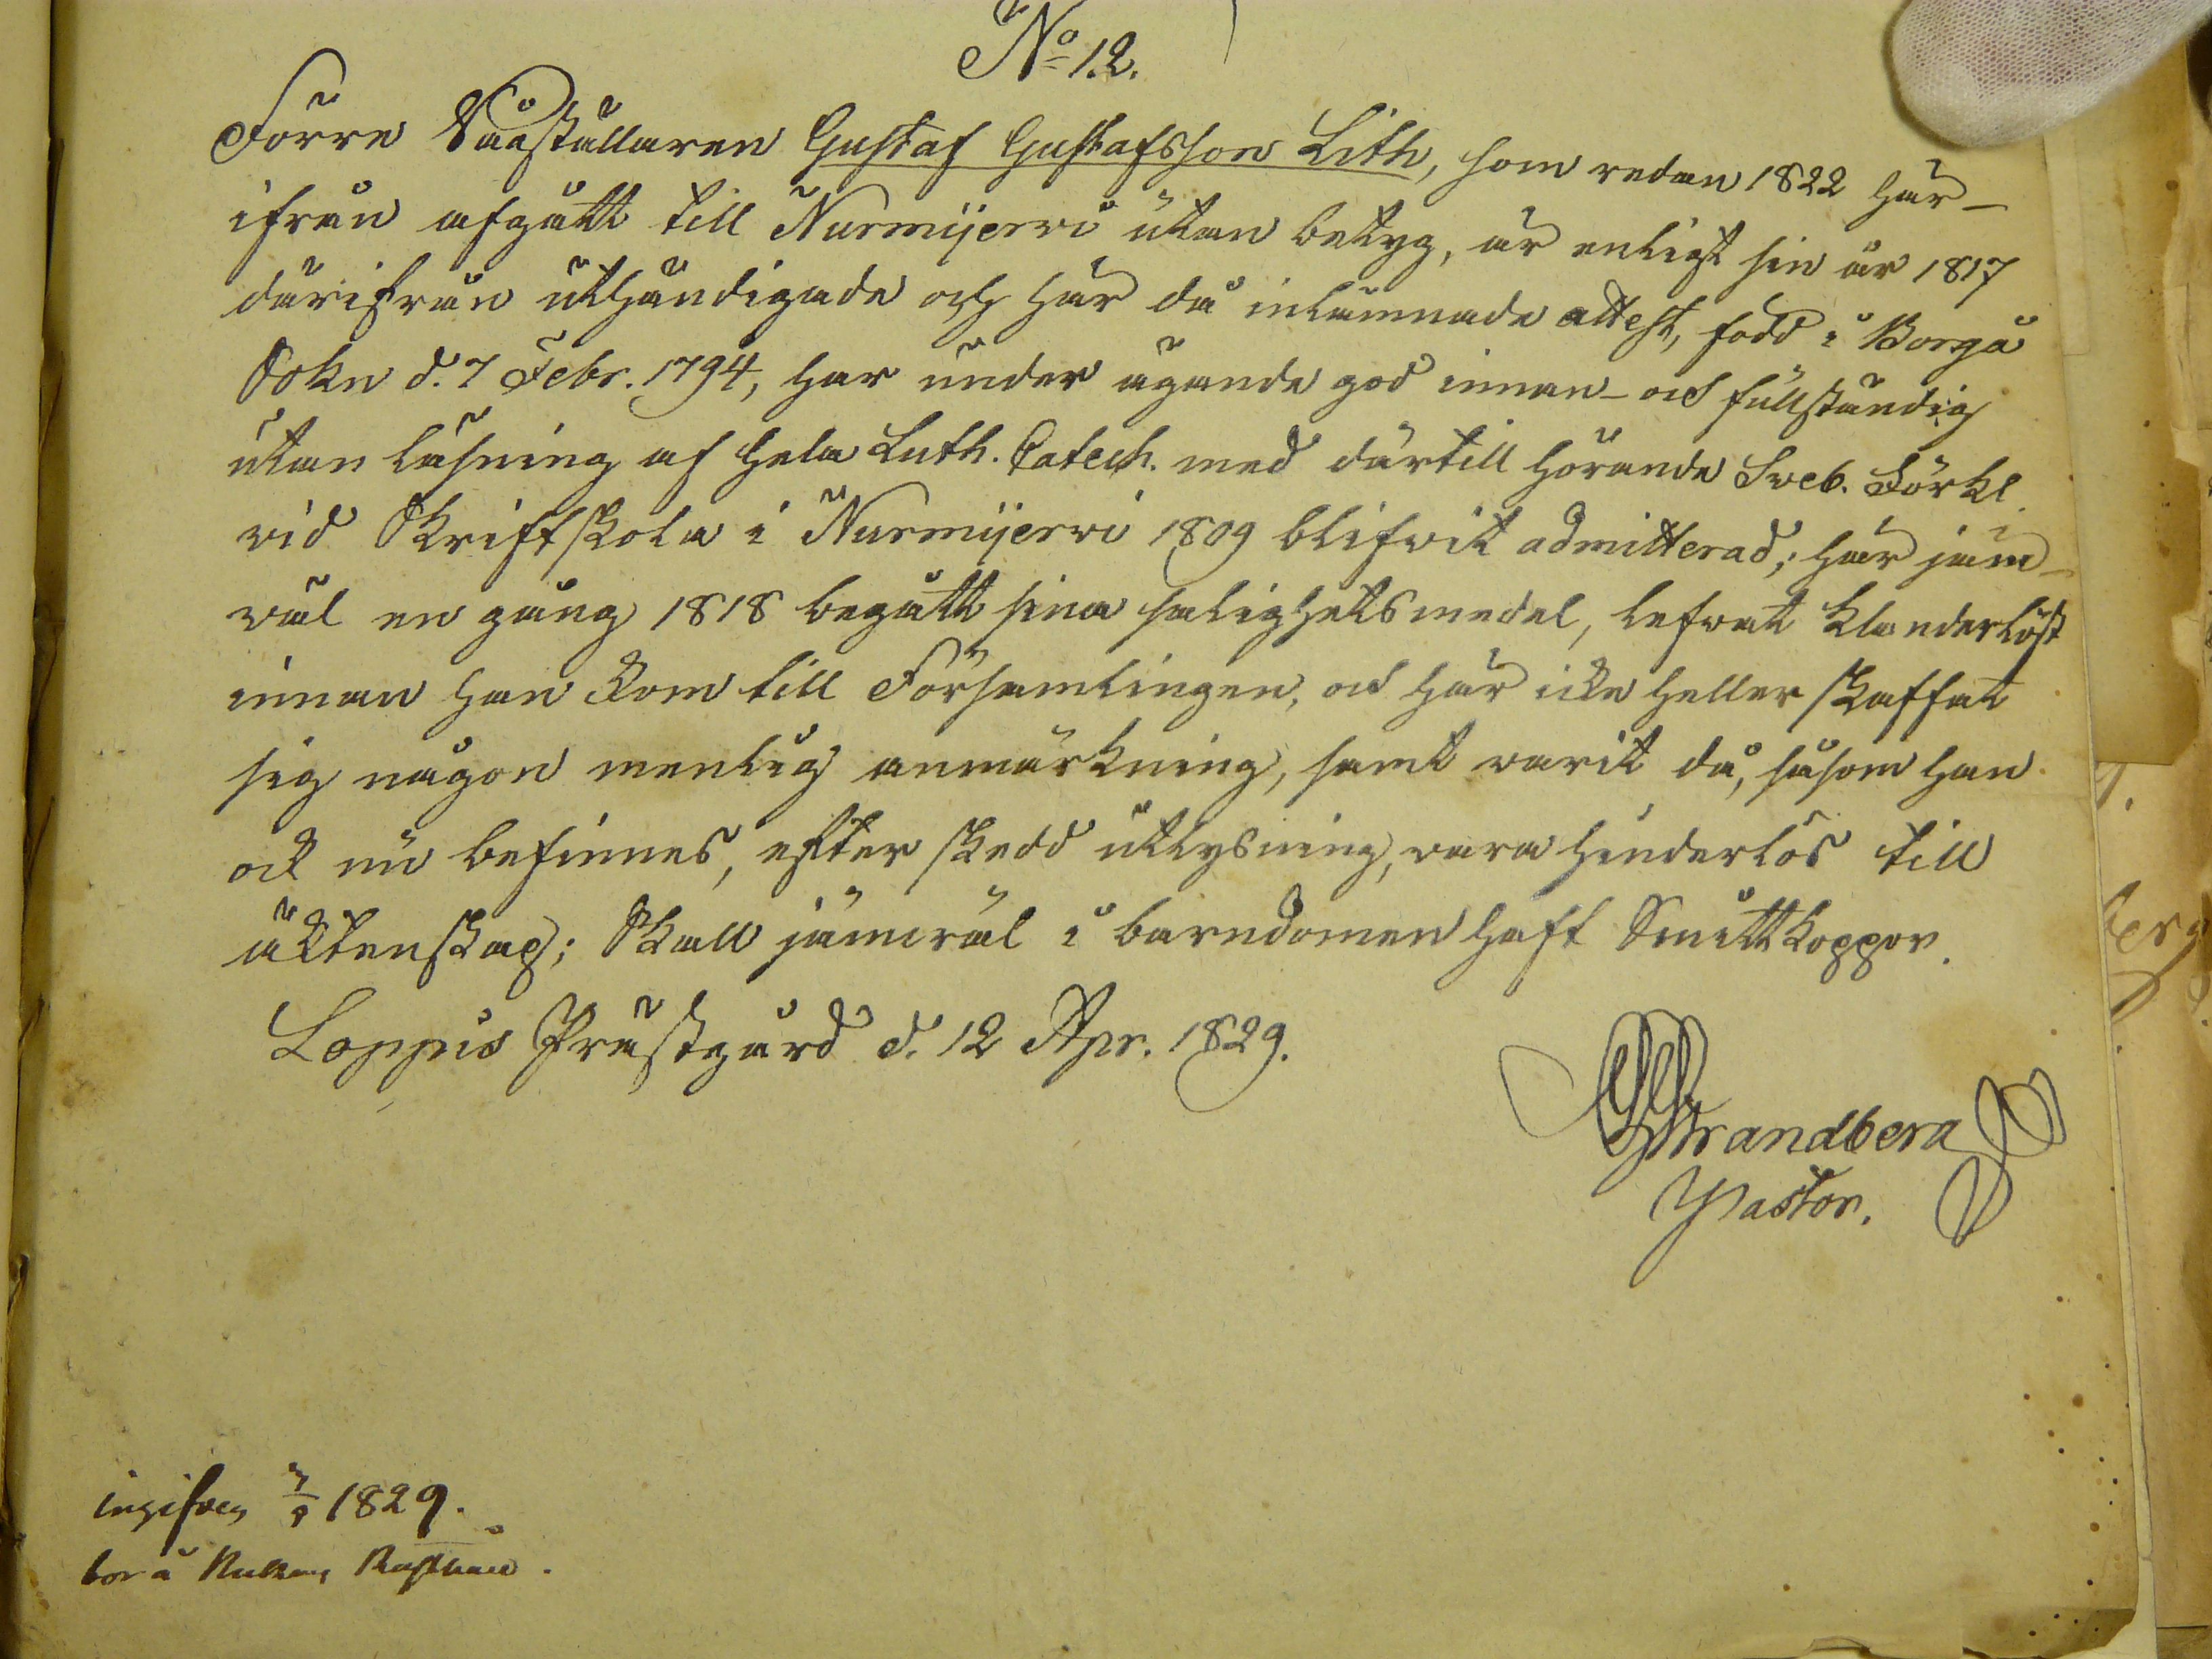 No 12.
Förre Vaeställaren Gustaf Gustafsson Lith, som redan 1822 här-
ifrån afgått till Nurmijerwi utan betyg, är enligt sin år 1817
därifrån uthändigade och här då inlämnade attest, född i Borgå
Sokn d. 7 Febr. 1794, har under ägande god innan- och fullständig
utan läsning af hela Luth. Catech. med därtill hörande Sveb. Förkl.
vid Skriftskola i Nurmijerwi 1809 blifwit admitterad; här jäm-
wäl en gång 1818 begått sina salighetsmedel, lefwat klanderlöst
innan han kom till Församlingen, och här icke heller skaffat
sig någon menlig anmärkning, samt warit då, såsom han
ock nu befinnes, efter skedd utlysning, wara hinderlös till
äktenskap; Skall jämwäl i barndomen haft Smittkoppor.
Loppis Prästgård d. 12 Apr. 1829.
Strandberg
Pastor.
ingifven 1829.
bor å